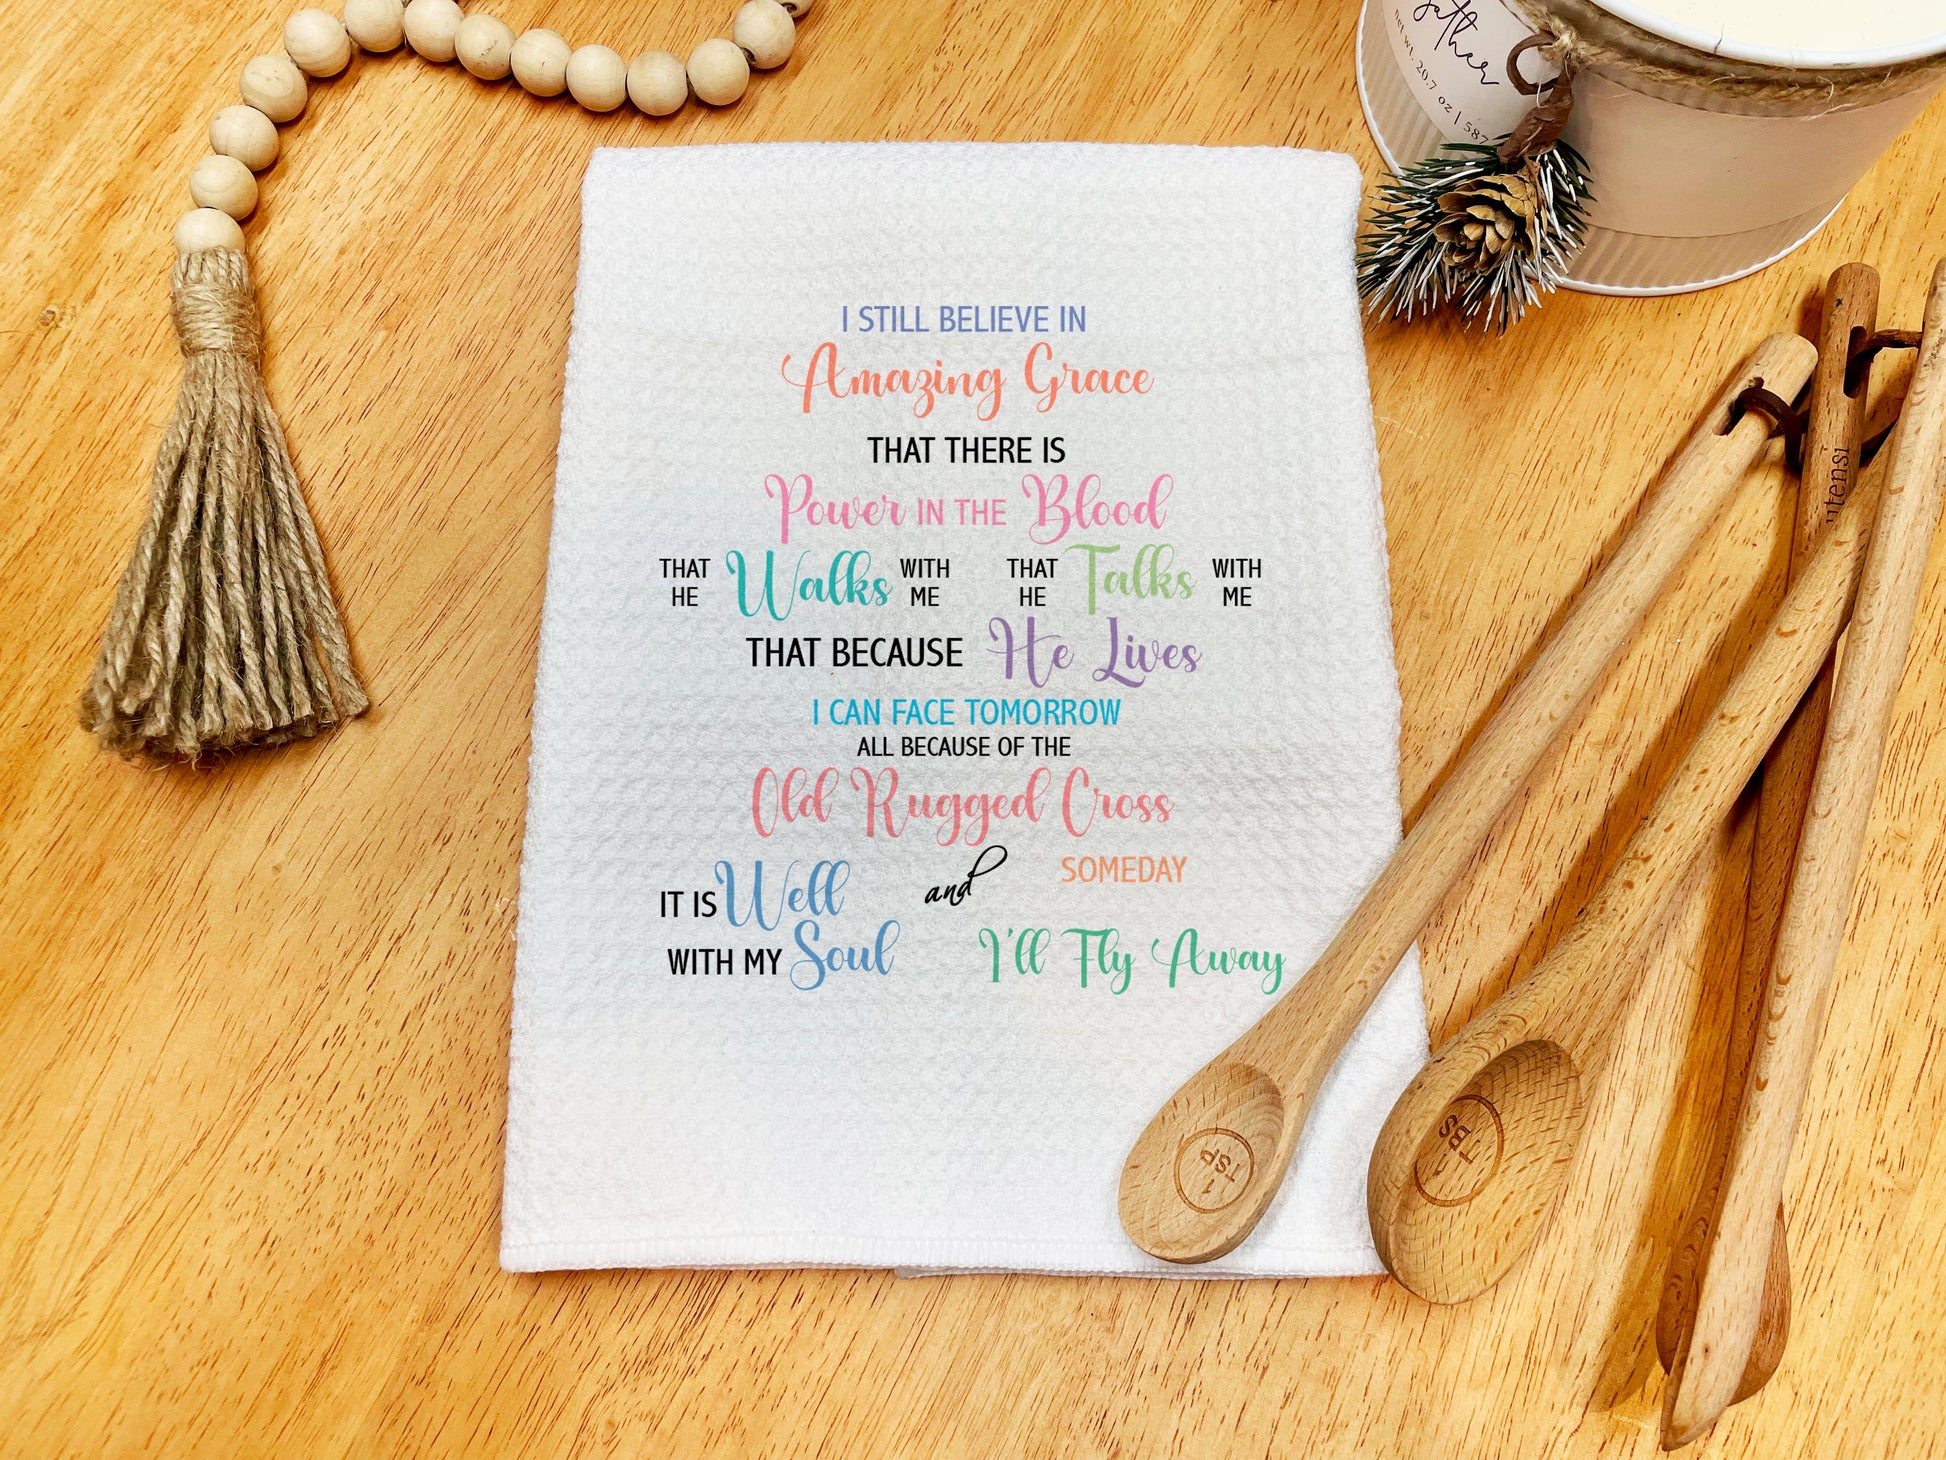 I STILL BELIEVE IN
Amazing Grace
THAT THERE IS
Power IN THE Blood
THAT HE Walks WITH ME THAT HE Talks WITH ME
THAT BECAUSE He Lives
I CAN FACE TOMORROW
ALL BECAUSE OF THE
Old Rugged Cross
IT IS Well WITH MY Soul
and
SOMEDAY
I'll Fly Away
gather
net wt. 20.7 oz | 587
utensi
1 TSP
1 TBS